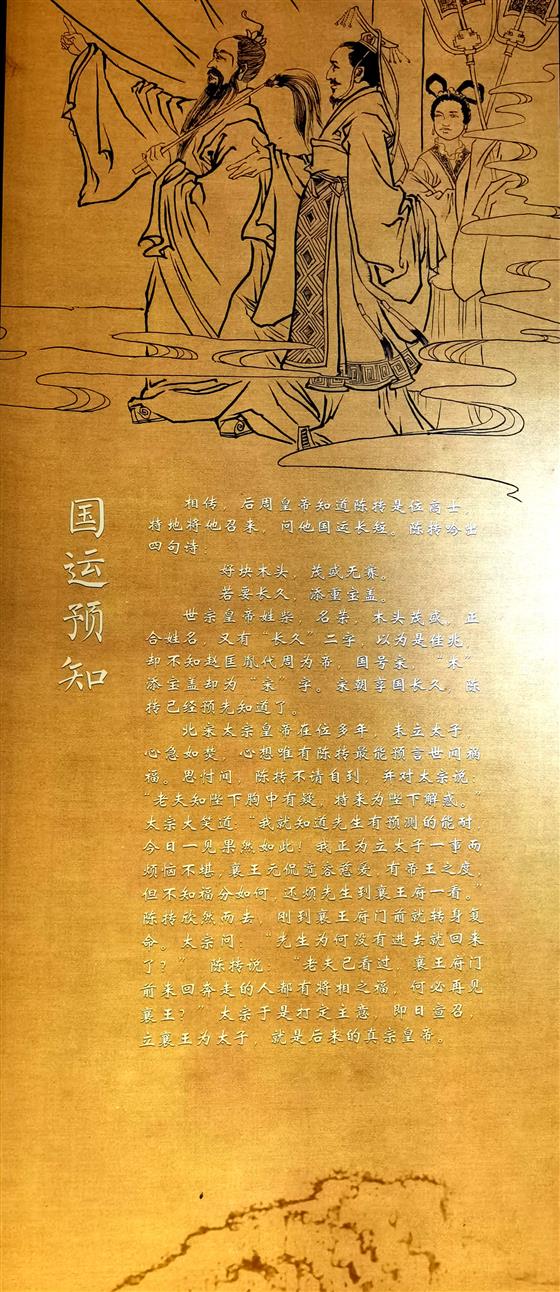 国运预知
相传，后周皇帝知道陈抟是位高士，
特地将他召来，问他国运长短。陈抟吟出
四句诗：
好块木头，茂盛无赛。
若要长久，添重宝盖。
世宗皇帝姓柴，名荣，木头茂盛，正
合姓名，又有“长久”二字，以为是佳兆，
却不知赵匡胤代周为帝，国号宋，“木”
添宝盖却为“宋”字。宋朝享国长久，陈
抟已经预先知道了。
北宋太宗皇帝在位多年，未立太子，
心急如焚，心想唯有陈抟最能预言世间祸
福。思忖间，陈抟不请自到，并对太宗说：
“老夫知陛下胸中有疑，特来为陛下解惑。”
太宗大笑道：“我就知道先生有预测的能耐，
今日一见果然如此！我正为立太子一事而
烦恼不堪，襄王元侃宽容慈爱，有帝王之度，
但不知福分如何，还烦先生到襄王府一看。”
陈抟欣然而去，刚到襄王府门前就转身复
命。太宗问：“先生为何没有进去就回来
了？” 陈抟说：“老夫已看过，襄王府门
前来回奔走的人都有将相之福，何必再见
襄王？”太宗于是打定主意，即日宣召，
立襄王为太子，就是后来的真宗皇帝。